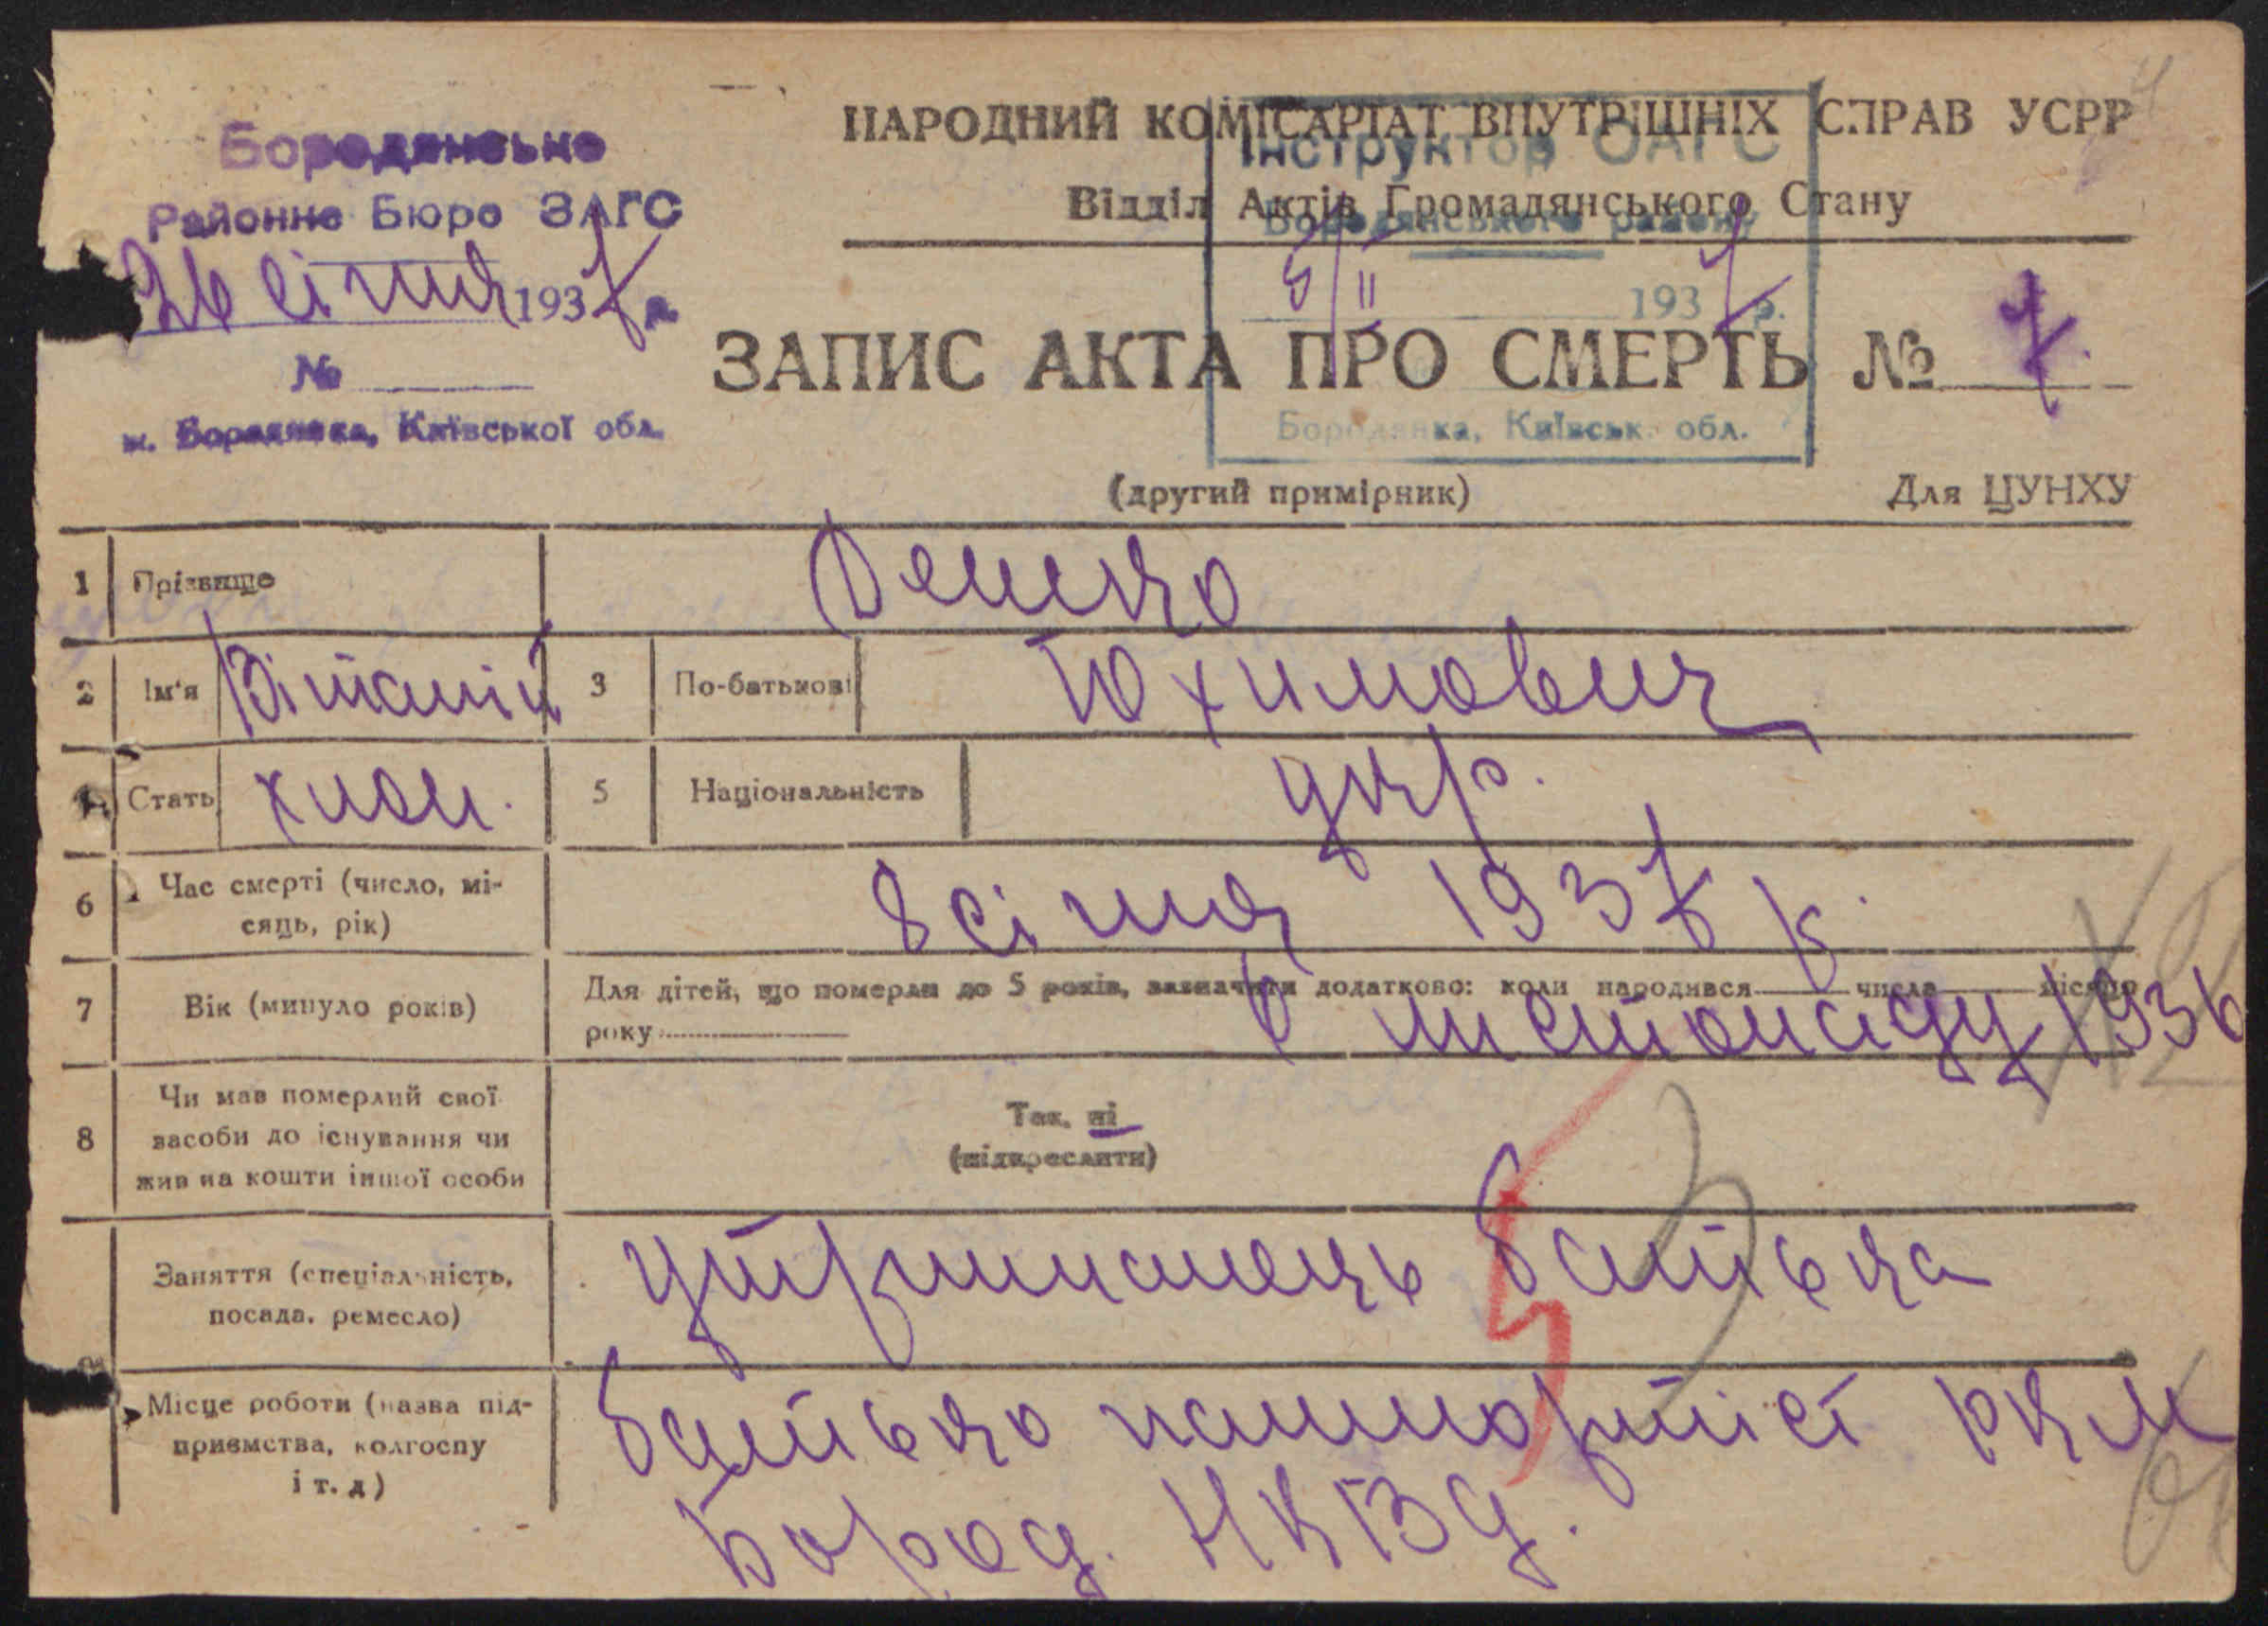 Бородянське
Районне Бюро ЗАГС
26 січня 1937 р.
№
м. Бородянка, Київської обл.
НАРОДНИЙ КОМІСАРІАТ ВНУТРІШНІХ СПРАВ УСРР
Відділ Актів Громадянського Стану
Інструктор ОАГС
Бородянського району
5/II 1937 р.
Бородянка, Київськ. обл.
ЗАПИС АКТА ПРО СМЕРТЬ № 7.
(другий примірник) Для ЦУНХУ
1 Прізвище
2 Ім'я Віталій 3 По-батькові Юхимович
Стать хлоп. 5 Національність укр.
6 Час смерті (число, мі-
сяць, рік) 8 січня 1937 р.
7 Вік (минуло років) Для дітей, що померли до 5 років, зазначити додатково: коли народився числа місяця
року листопаду 1936
8 Чи мав померлий свої
засоби до існування чи
жив на кошти іншої особи
Так, ні
(підкреслити)
Заняття (спеціальність,
посада, ремесло) утриманець батька
Місце роботи (назва під-
приємства, колгоспу
і т. д) батько пашпортіст РКМ
Бород. НКВД.